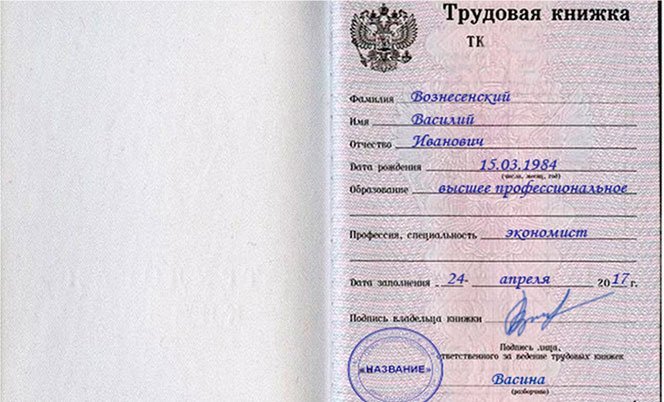 Трудовая книжка
ТК
Фамилия Вознесенский
Имя Василий
Отчество Иванович
Дата рождения 15.03.1984
(число, месяц, год)
Образование высшее профессиональное
Профессия, специальность экономист
Дата заполнения 24- апреля 2017 г.
Подпись владельца книжки
Подпись лица,
ответственного за ведение трудовых книжек
«НАЗВАНИЕ»
Васина
(разборчиво)